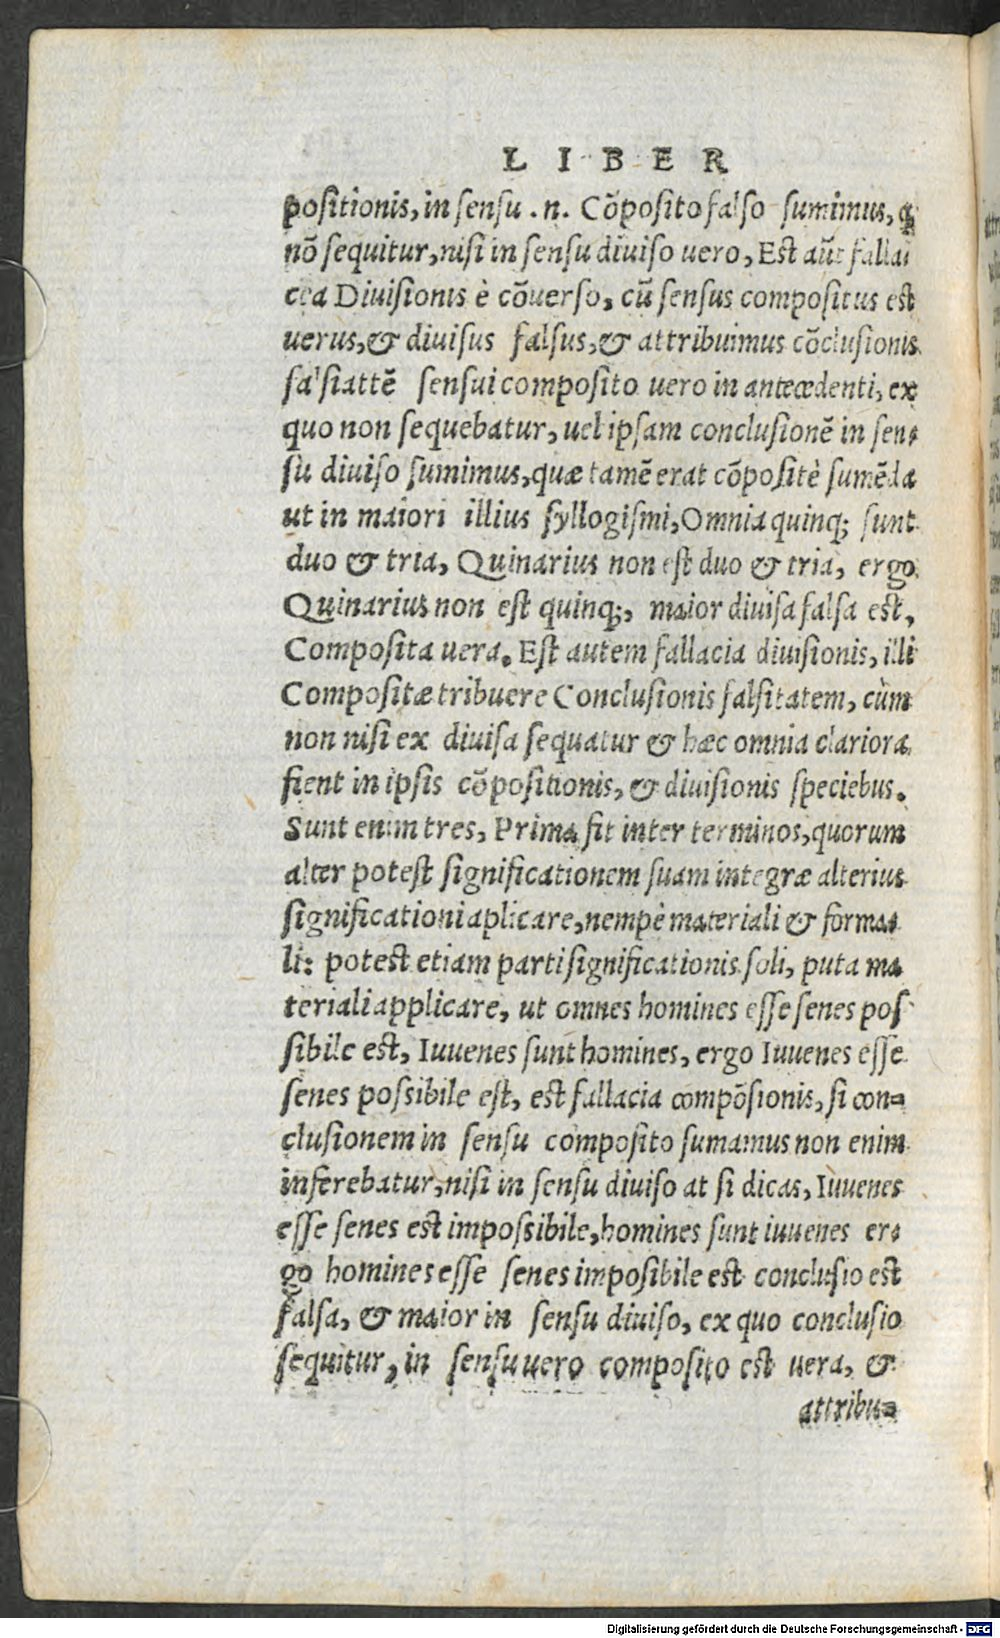 LIBER
positionis, in sensu .n. Cõposito falso sumimus, q
nõ sequitur, nisi in sensu diuiso uero, Est aũt fallai
cea Diuisionis è cõuerso, cũ sensus compositus est
uerus, & diuisus falsus, & attribuimus cõclusionis
falsiattẽ sensui composito uero in antecedenti, ex
quo non sequebatur, uel ipsam conclusionẽ in sen-
su diuiso sumimus, quæ tamẽ erat cõpositè sumẽda
ut in maiori illius syllogismi, Omnia quinq; sunt
duo & tria, Quinarius non est duo & tria, ergo
Quinarius non est quinq;, maior diuisa falsa est,
Composita uera. Est autem fallacia diuisionis, illi
Compositæ tribuere Conclusionis falsitatem, cùm
non nisi ex diuisa sequatur & hæc omnia clariora
fient in ipsis cõpositionis, & diuisionis speciebus.
Sunt enim tres, Prima fit inter terminos, quorum
alter potest significationem suam integræ alterius
significationi aplicare, nempè materiali & forma-
li: potest etiam parti significationis soli, puta ma
teriali applicare, ut omnes homines esse senes pos
sibile est, Iuuenes sunt homines, ergo Iuuenes esse
senes possibile est, est fallacia compõsionis, si con=
clusionem in sensu composito sumamus non enim
inferebatur, nisi in sensu diuiso at si dicas, Iuuenes
esse senes est impossibile, homines sunt iuuenes er-
go homines esse senes imposibile est conclusio est
falsa, & maior in sensu diuiso, ex quo conclusio
sequitur, in sensu uero composito est uera, &
attribu=
Digitalisierung gefördert durch die Deutsche Forschungsgemeinschaft - DFG